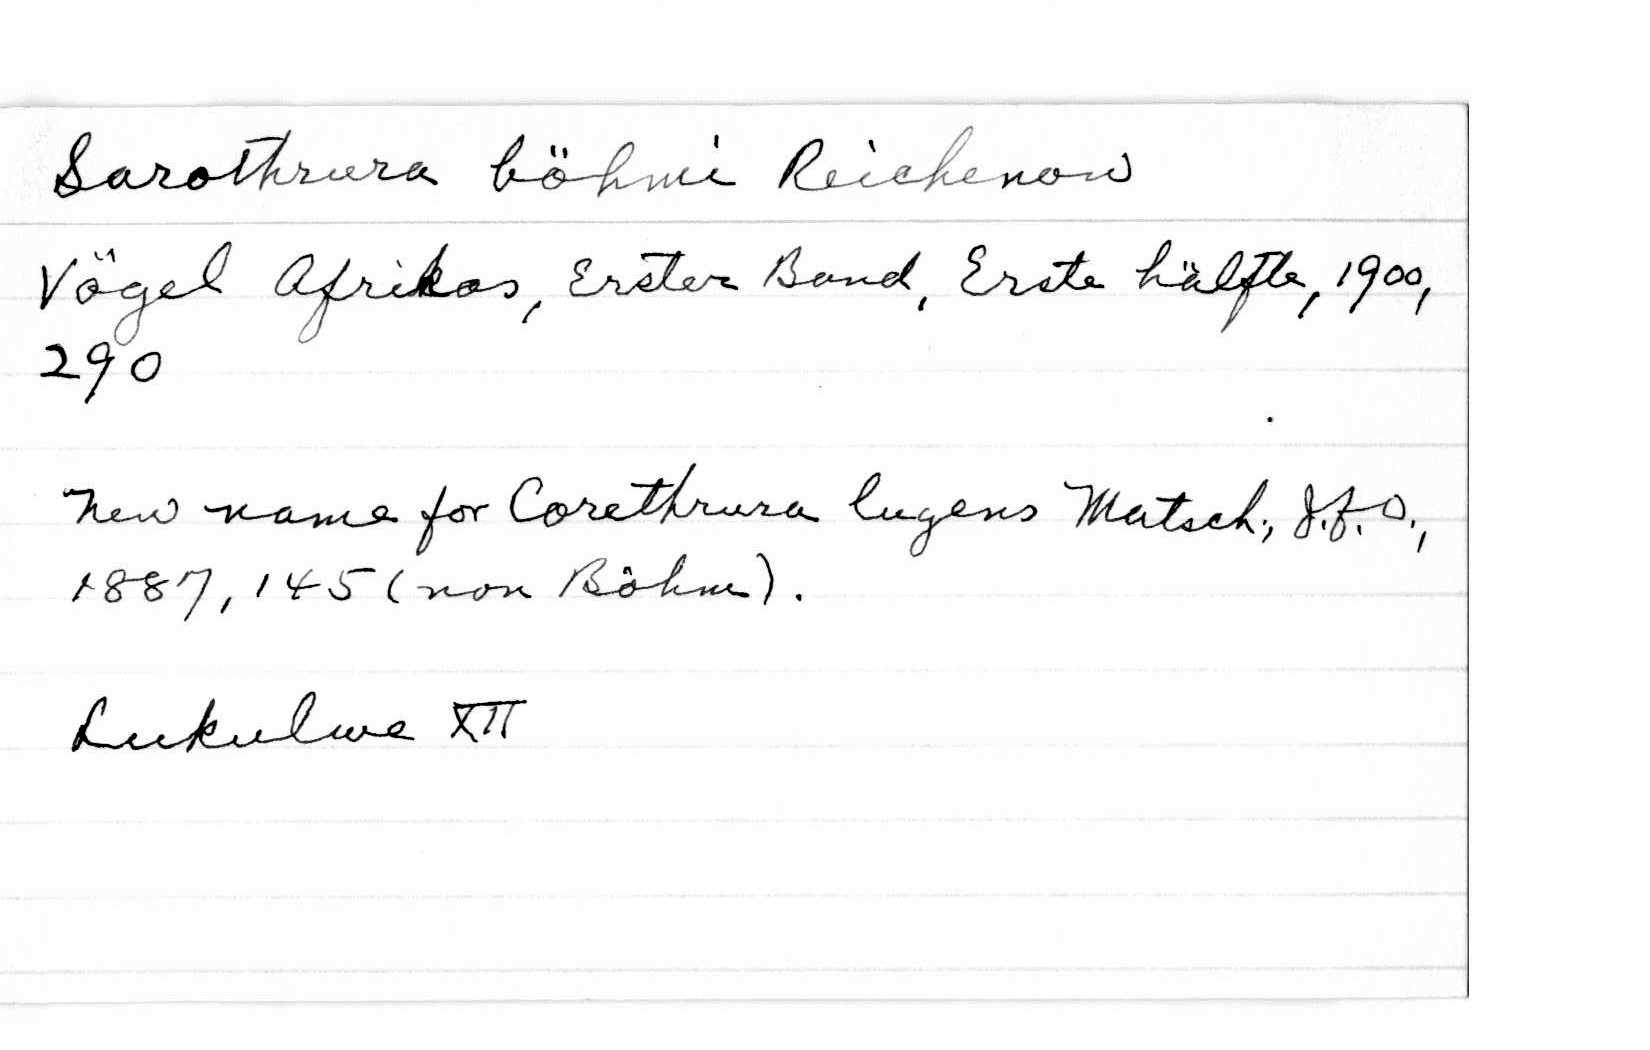 Sarothrura böhmi Reichenow
Vögel Afrikas, Erster Band, Erste hälfte, 1900,
290
New name for Corethrura lugens Matsch., J.f.O.,
1887, 145 (non Böhm).
Lukulwe XII